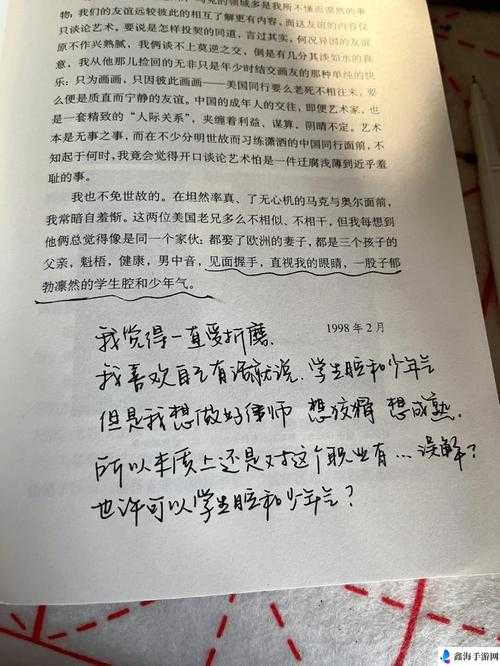 物，我们的友谊远较彼此的相互了解更有内容，而这友谊的内容仅
只谈论艺术。要说是怎样投契的同道，言过其实，何况异国的友谊
原不作兴熟腻，我俩谈不上莫逆之交，倒是有几分其淡如水的良
意，我从他那儿捡回的无非只是年少时结交画友的那种单纯的快
乐：只为画画，只因彼此画画——美国同行要么老死不相往来，要
么便是质直而宁静的友谊。中国的成年人的交往，即便艺术家，也
是一套精致的“人际关系”，夹缠着利益、谋算，阴晴不定。艺术
本是无事之事，而在不少分明世故而习练潇洒的中国同行面前，不
知起于何时，我竟会觉得开口谈论艺术怕是一件迂腐浅薄到近乎羞
耻的事。
我也不免世故的。在坦然率真、了无心机的马克与奥尔面前，
我常暗自羞惭。这两位美国老兄多么不相似、不相干，但我每想到
他俩总觉得像是同一个家伙：都娶了欧洲的妻子，都是三个孩子的
父亲，魁梧，健康，男中音，见面握手，直视我的眼睛，一股子郁
勃凛然的学生腔和少年气。
1998 年 2 月
我觉得一直受折磨.
我喜欢自己有话就说. 学生腔和少年气
但是我想做好律师 想狡猾 想成熟.
所以本质上还是对这个职业有…误解？
也许可以学生腔和少年气？
鑫海手游网